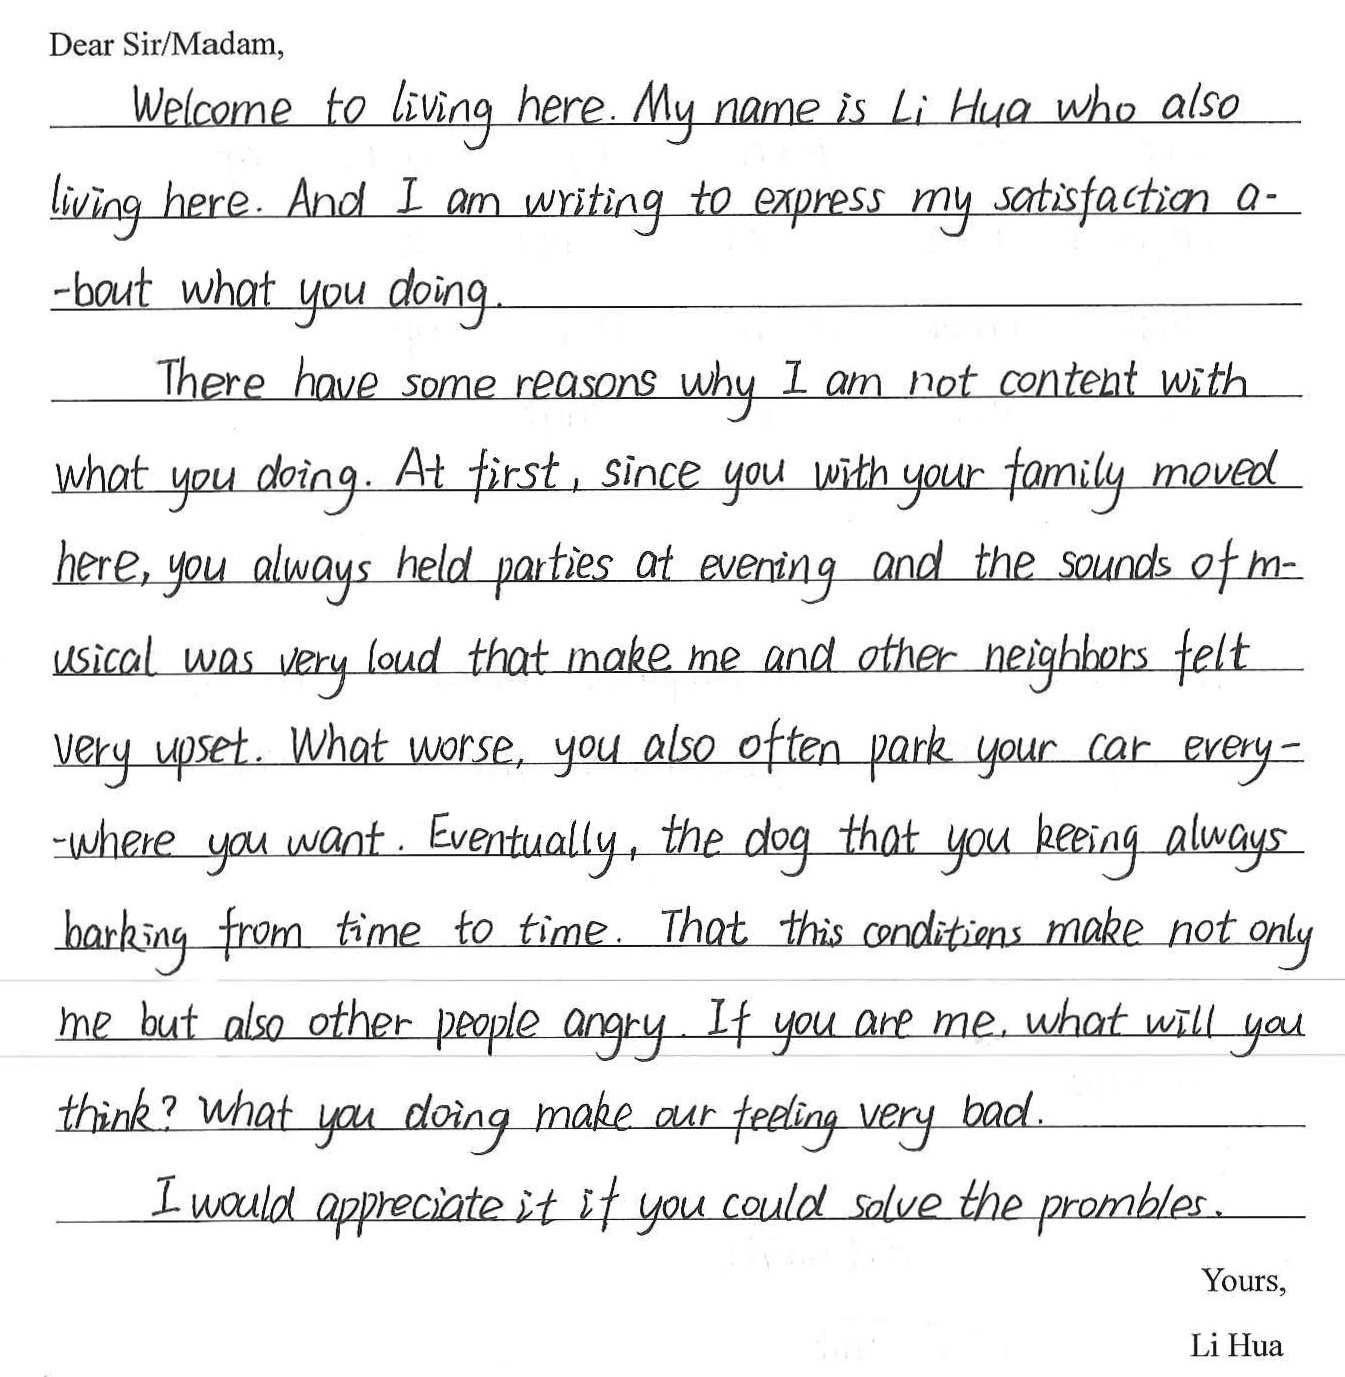 Dear Sir/Madam,
Welcome to living here. My name is Li Hua who also
living here. And I am writing to express my satisfaction a-
-bout what you doing.
There have some reasons why I am not content with
what you doing. At first, since you with your family moved
here, you always held parties at evening and the sounds of m-
usical was very loud that make me and other neighbors felt
very upset. What worse, you also often park your car every-
-where you want. Eventually, the dog that you keeing always
barking from time to time. That this conditions make not only
me but also other people angry. If you are me, what will you
think? What you doing make our feeling very bad.
I would appreciate it if you could solve the prombles.
Yours,
Li Hua